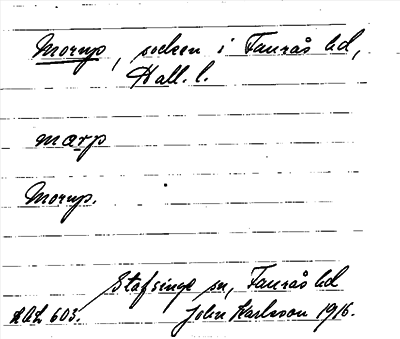 Morup, socken i Faurås hd,
Hall. l.
mɑrp
Morup.
Stafsinge sn, Faurås hd
AUL 603. John Karlsson 1916.